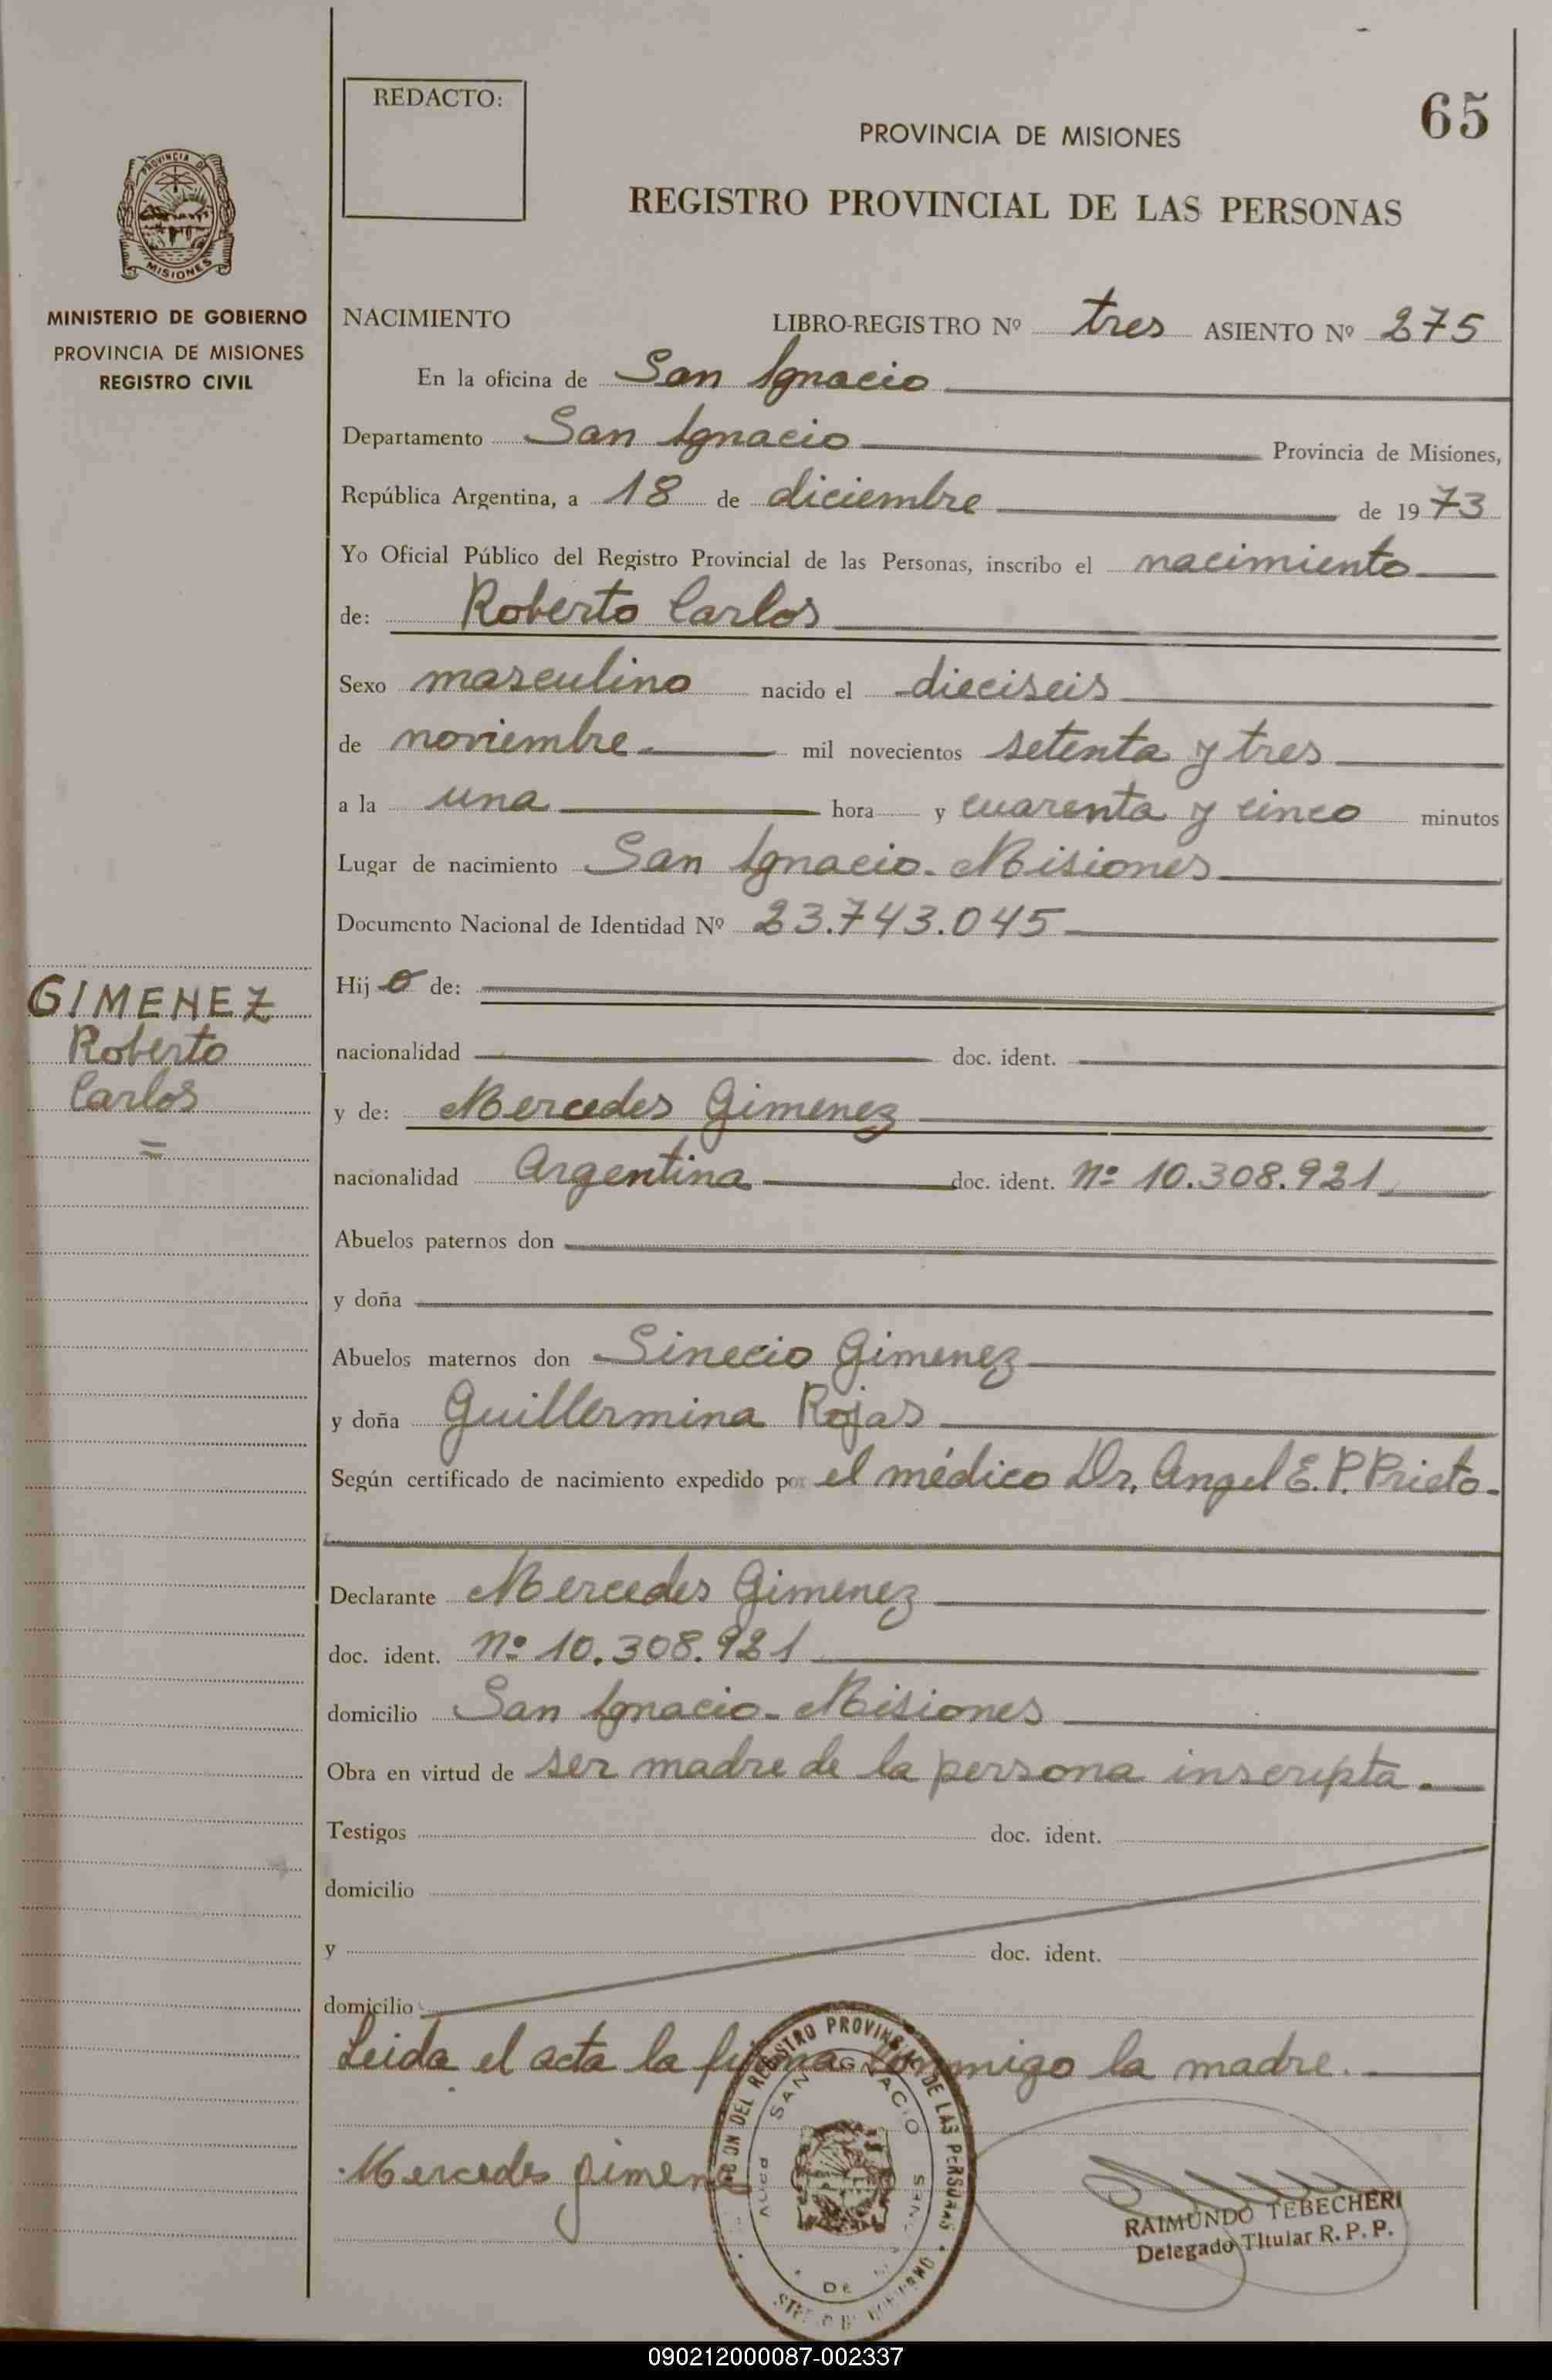 REDACTO:
65
PROVINCIA DE MISIONES
REGISTRO PROVINCIAL DE LAS PERSONAS
PROVINCIA DE
MISIONES
MINISTERIO DE GOBIERNO
PROVINCIA DE MISIONES
REGISTRO CIVIL
NACIMIENTO LIBRO-REGISTRO Nº tres ASIENTO Nº 275
En la oficina de San Ignacio
Departamento San Ignacio Provincia de Misiones,
República Argentina, a 18 de diciembre de 1973
Yo Oficial Público del Registro Provincial de las Personas, inscribo el nacimiento
de: Roberto Carlos
Sexo masculino nacido el dieciseis
de noviembre mil novecientos setenta y tres
a la una hora y cuarenta y cinco minutos
Lugar de nacimiento San Ignacio. Misiones
Documento Nacional de Identidad Nº 23.743.045
Hijo de:
nacionalidad doc. ident.
y de: Mercedes Gimenez
nacionalidad Argentina doc. ident. Nº 10.308.921
Abuelos paternos don
y doña
Abuelos maternos don Sinecio Gimenez
y doña Guillermina Rojas
Según certificado de nacimiento expedido por el médico Dr. Angel E. P. Prieto.
Declarante Mercedes Gimenez
doc. ident. Nº 10.308.921
domicilio San Ignacio. Misiones
Obra en virtud de ser madre de la persona inscripta.
Testigos doc. ident.
domicilio
y doc. ident.
domicilio
Leida el acta la firma conmigo la madre.
GIMENEZ
Roberto
Carlos
=
Mercedes gimene
DEL REGISTRO PROVINCIAL DE LAS PERSONAS
SAN IGNACIO
DE
RAIMUNDO TEBECHERI
Delegado Titular R. P. P.
090212000087-002337